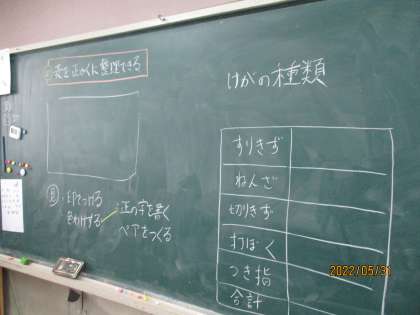 表を正かくに整理できる
けがの種類
すりきず
ねんざ
切りきず
打ぼく
つき指
合計
見
・印をつける
色わけする
・正の字を書く
ペアをつくる
2022/05/31